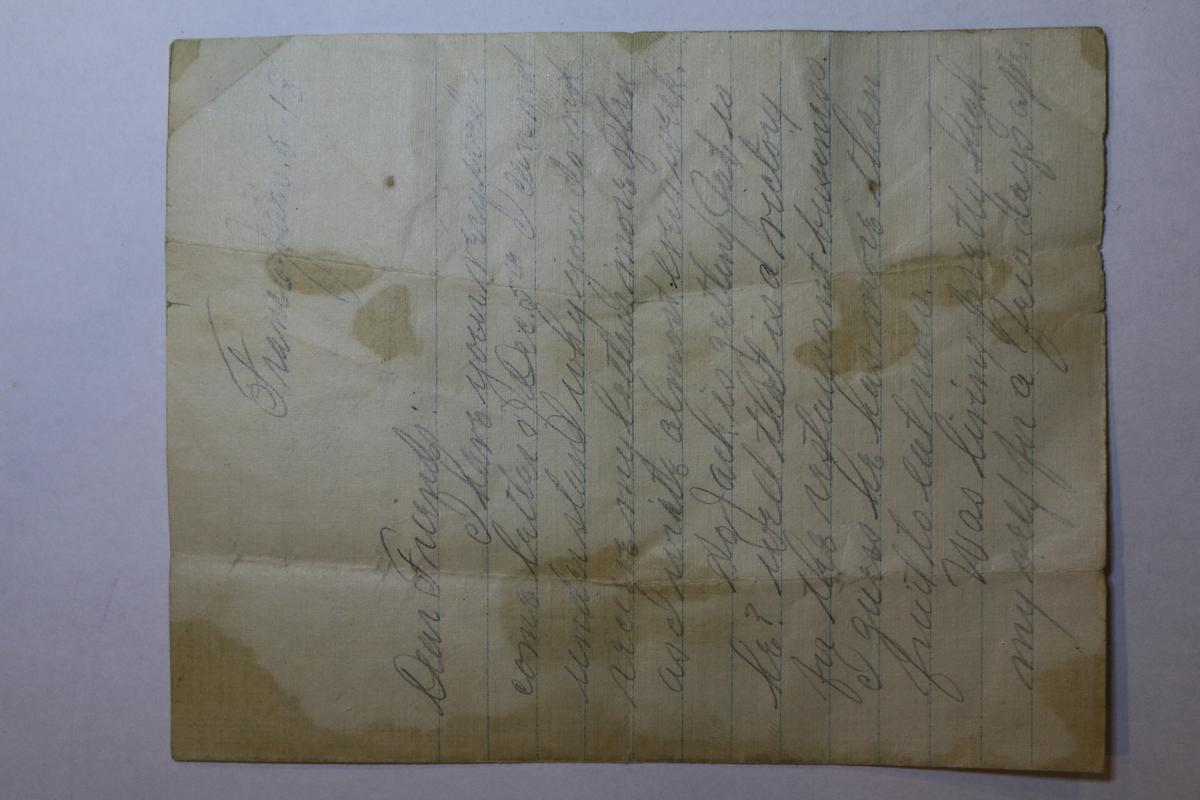 France Jan. 5 19
Dear Friends.
I have your very wel
come letter of Dec 9th I can not
understand why you do not
recive my letters more often
as I write almost every week.
So Jack is getting fat is
he? well that is a victory
for the restaurant business.
I guess he has more than
fruit to eat now.
Was living pretty high
my self for a few days ago